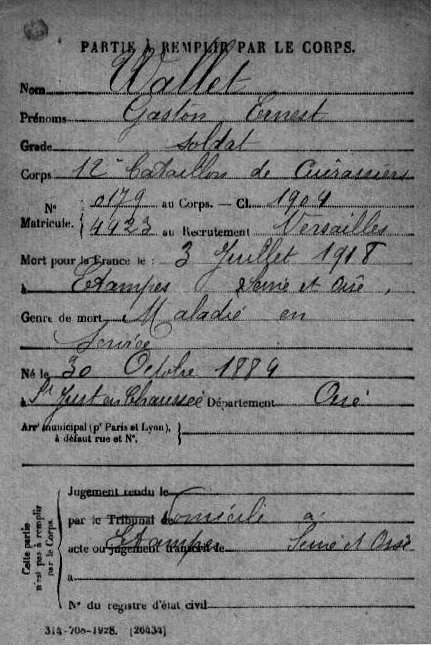 PARTIE À REMPLIR PAR LE CORPS.
Nom Wallet
Prénoms Gaston Ernest
Grade Soldat
Corps 12e bataillon de Cuirassiers
N° Matricule. { 0179 au Corps. — Cl. 1904
4423 au Recrutement Versailles
Mort pour la France le : 3 Juillet 1918
à Etampes Seine et Oise
Genre de mort Maladie en
Service
Né le 30 Octobre 1884
à St Just en Chaussée Département Oise
Arrt municipal (pr Paris et Lyon), à défaut rue et N°. }
Cette partie n'est pas à remplir par le Corps.
Jugement rendu le
par le Tribunal de Domicilié à
acte ou jugement transcrit le Etampes Seine et Oise
à
N° du registre d'état civil
314-708-1928. [26434]